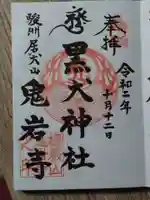 奉拝
令和二年
十月十二日
黒犬神社
駿州 居尻山
鬼岩寺